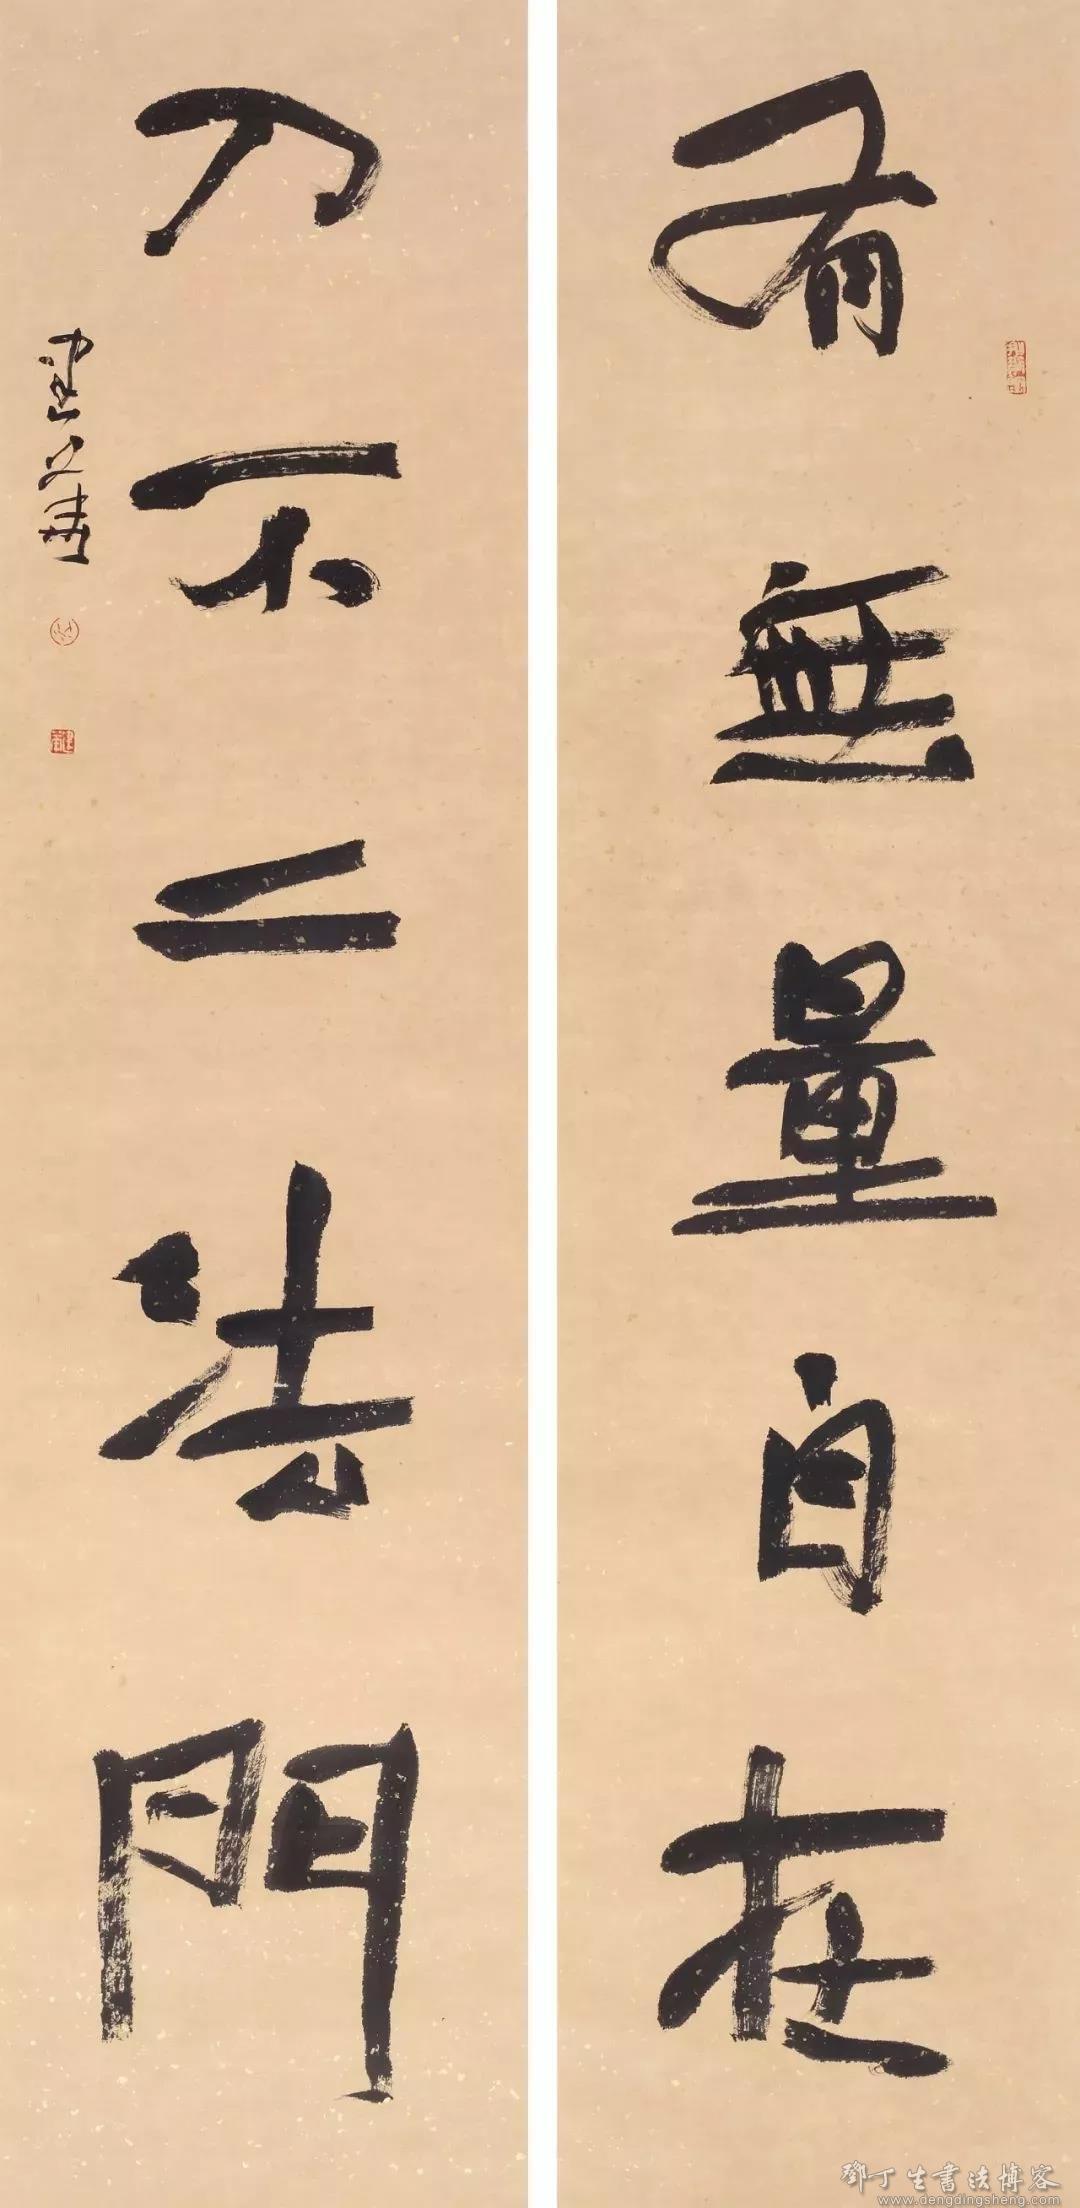 有無量自在
入不二法門
鄧丁生書法博客
www.dengdingsheng.com